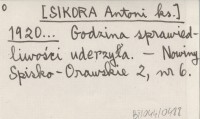 [SIKORA Antoni ks.]
1920... Godzina sprawied-
liwości uderzyła. — Nowiny
Spisko-Orawskie 2, nr 6.